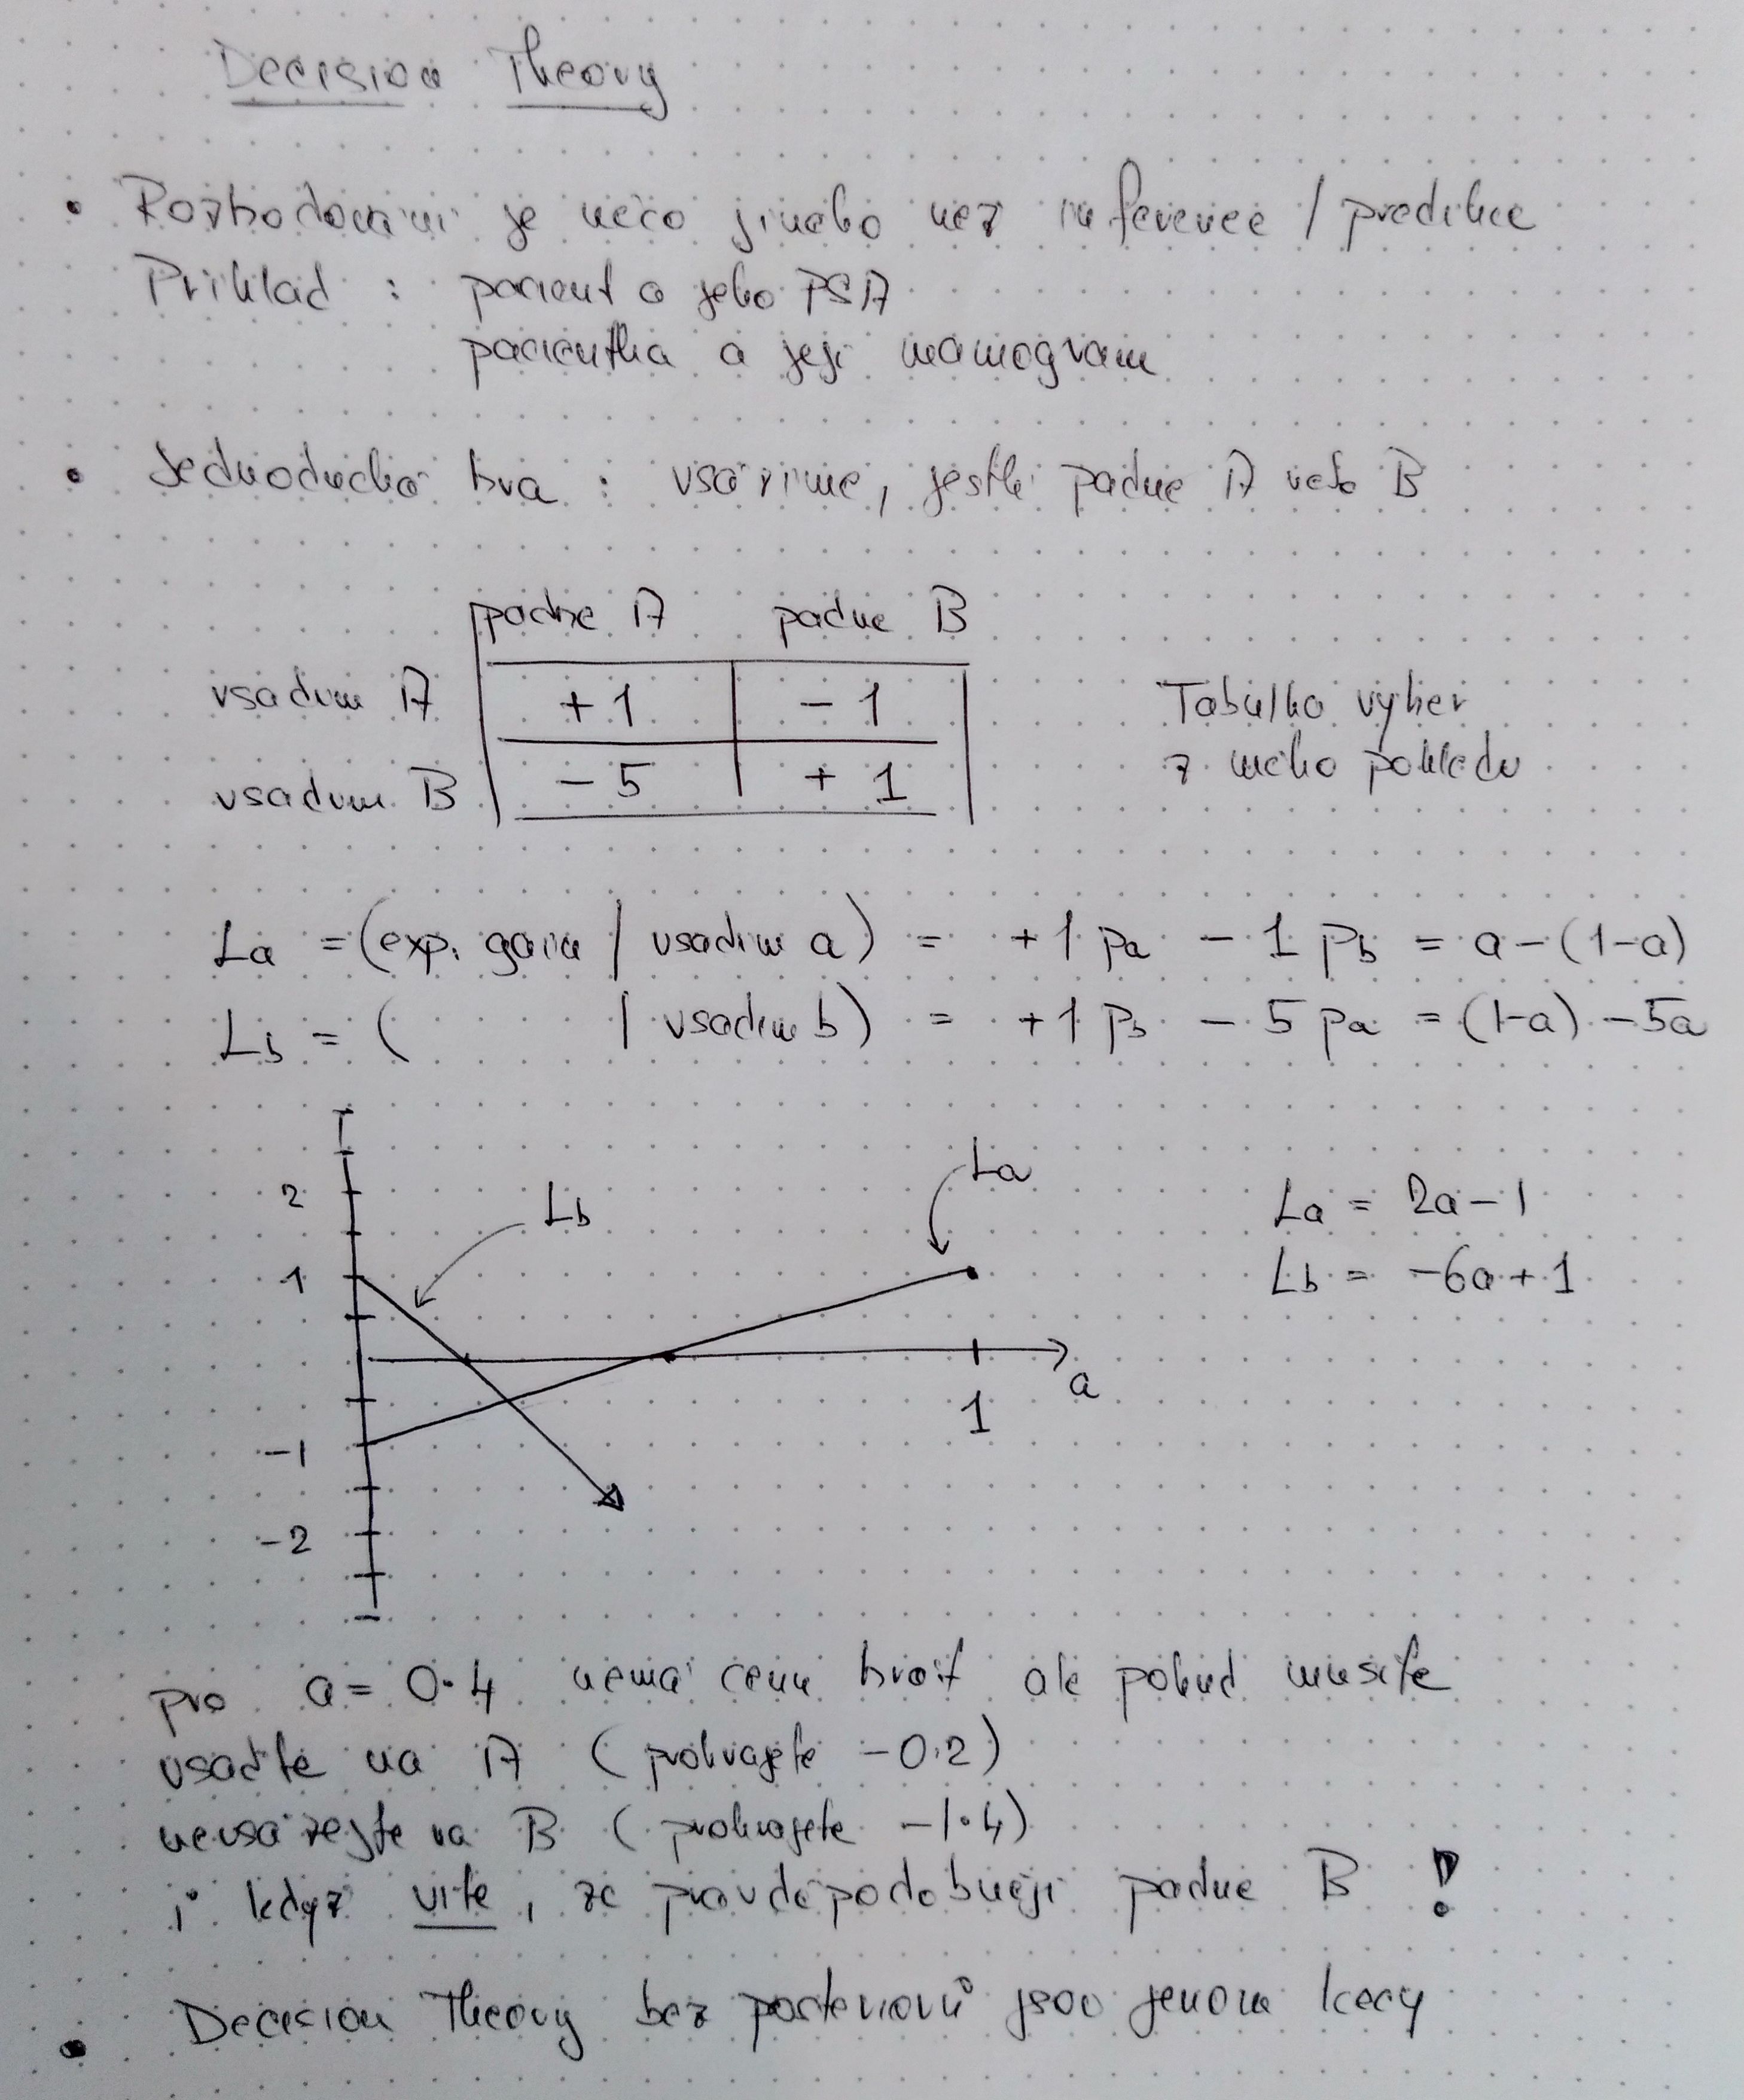 Decision Theory
• Rozhodování je něco jiného než inference / predikce
Příklad : pacient a jeho PSA
pacientka a její mamogram
• Jednoduchá hra : vsázíme, jestli padne A nebo B
padne A padne B
vsadím A +1 -1 Tabulka výher
vsadím B -5 +1 z mého pohledu
La = (exp. gain | vsadím a) = +1 pa - 1 pb = a - (1-a)
Lb = ( | vsadím b) = +1 pb - 5 pa = (1-a) - 5a
La
2 Lb La = 2a - 1
1 Lb = -6a + 1
a
1
-1
-2
pro a = 0.4 nemá cenu hrát ale pokud musíte
vsaďte na A (prohrajete -0.2)
nevsázejte na B (prohrajete -1.4)
i když víte, že pravděpodobněji padne B !
• Decision Theory bez posteriorů jsou jenom kecy